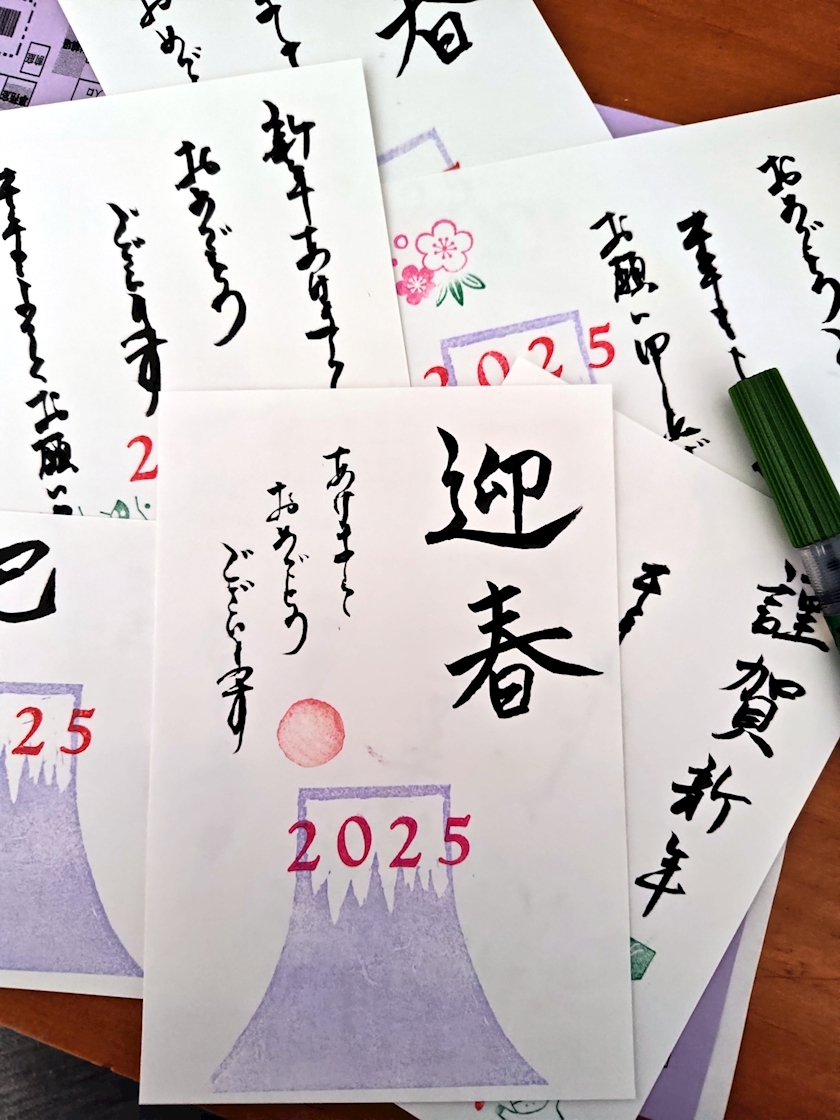 迎春
あけまして
おめでとう
ございます
2025
新年あけまして
おめでとう
ございます
お願い
2
春
おめで
おめでとう
本年も
お願い申
2025
謹賀新年
巳
25